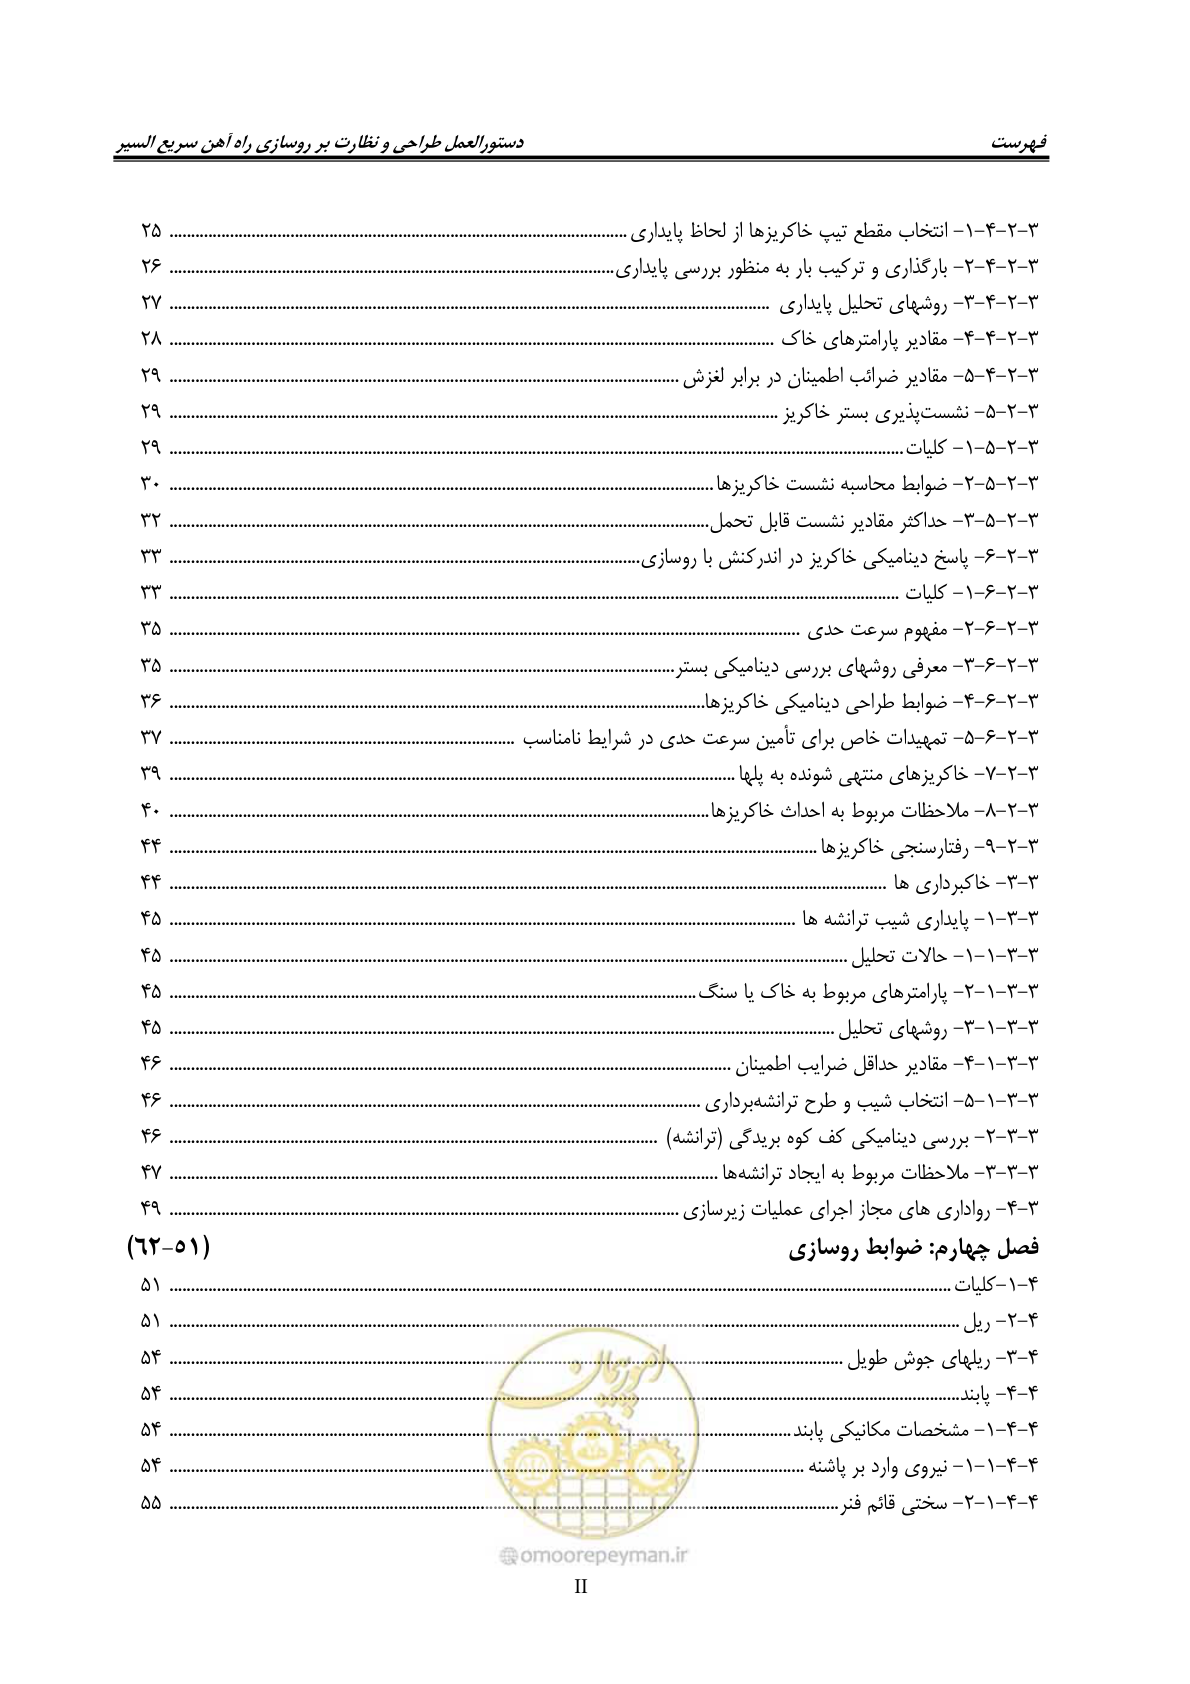 فهرست دستورالعمل طراحی و نظارت بر روسازی راه آهن سریع السیر
۳-۲-۴-۱- انتخاب مقطع تیپ خاکریزها از لحاظ پایداری ........ ۲۵
۳-۲-۴-۲- بارگذاری و ترکیب بار به منظور بررسی پایداری ........ ۲۶
۳-۲-۴-۳- روشهای تحلیل پایداری ........ ۲۷
۳-۲-۴-۴- مقادیر پارامترهای خاک ........ ۲۸
۳-۲-۴-۵- مقادیر ضرائب اطمینان در برابر لغزش ........ ۲۹
۳-۲-۵- نشست‌پذیری بستر خاکریز ........ ۲۹
۳-۲-۵-۱- کلیات ........ ۲۹
۳-۲-۵-۲- ضوابط محاسبه نشست خاکریزها ........ ۳۰
۳-۲-۵-۳- حداکثر مقادیر نشست قابل تحمل ........ ۳۲
۳-۲-۶- پاسخ دینامیکی خاکریز در اندرکنش با روسازی ........ ۳۳
۳-۲-۶-۱- کلیات ........ ۳۳
۳-۲-۶-۲- مفهوم سرعت حدی ........ ۳۵
۳-۲-۶-۳- معرفی روشهای بررسی دینامیکی بستر ........ ۳۵
۳-۲-۶-۴- ضوابط طراحی دینامیکی خاکریزها ........ ۳۶
۳-۲-۶-۵- تمهیدات خاص برای تأمین سرعت حدی در شرایط نامناسب ........ ۳۷
۳-۲-۷- خاکریزهای منتهی شونده به پلها ........ ۳۹
۳-۲-۸- ملاحظات مربوط به احداث خاکریزها ........ ۴۰
۳-۲-۹- رفتارسنجی خاکریزها ........ ۴۴
۳-۳- خاکبرداری ها ........ ۴۴
۳-۳-۱- پایداری شیب ترانشه ها ........ ۴۵
۳-۳-۱-۱- حالات تحلیل ........ ۴۵
۳-۳-۱-۲- پارامترهای مربوط به خاک یا سنگ ........ ۴۵
۳-۳-۱-۳- روشهای تحلیل ........ ۴۵
۳-۳-۱-۴- مقادیر حداقل ضرایب اطمینان ........ ۴۶
۳-۳-۱-۵- انتخاب شیب و طرح ترانشه‌برداری ........ ۴۶
۳-۳-۲- بررسی دینامیکی کف کوه بریدگی (ترانشه) ........ ۴۶
۳-۳-۳- ملاحظات مربوط به ایجاد ترانشه‌ها ........ ۴۷
۳-۴- رواداری های مجاز اجرای عملیات زیرسازی ........ ۴۹
فصل چهارم: ضوابط روسازی (۵۱-۶۲)
۴-۱-کلیات ........ ۵۱
۴-۲- ریل ........ ۵۱
۴-۳- ریلهای جوش طویل ........ ۵۴
۴-۴- پابند ........ ۵۴
۴-۴-۱- مشخصات مکانیکی پابند ........ ۵۴
۴-۴-۱-۱- نیروی وارد بر پاشنه ........ ۵۴
۴-۴-۱-۲- سختی قائم فنر ........ ۵۵
امور پیمان
@omoorepeyman.ir
II